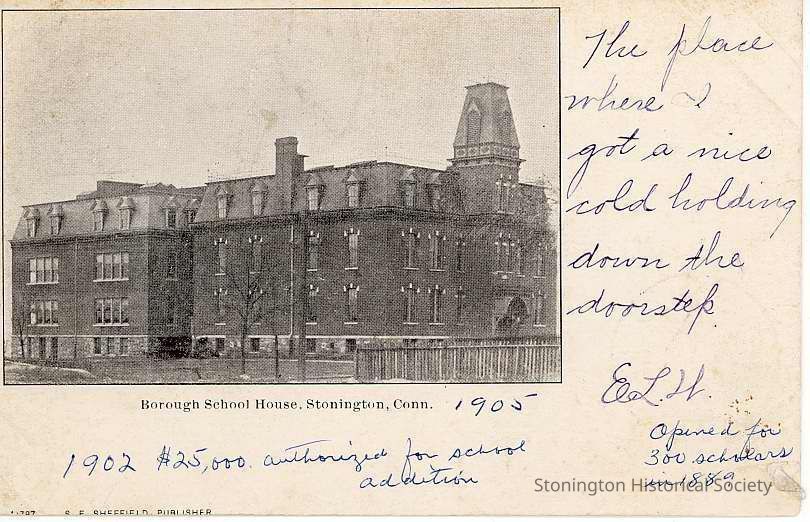 The place
where I
got a nice
cold holding
down the
doorstep
E L W.
Borough School House, Stonington, Conn. 1905
1902 $25,000. authorized for school
addition
Opened for
300 scholars
in 1889
Stonington Historical Society
S. E. SHEFFIELD, PUBLISHER